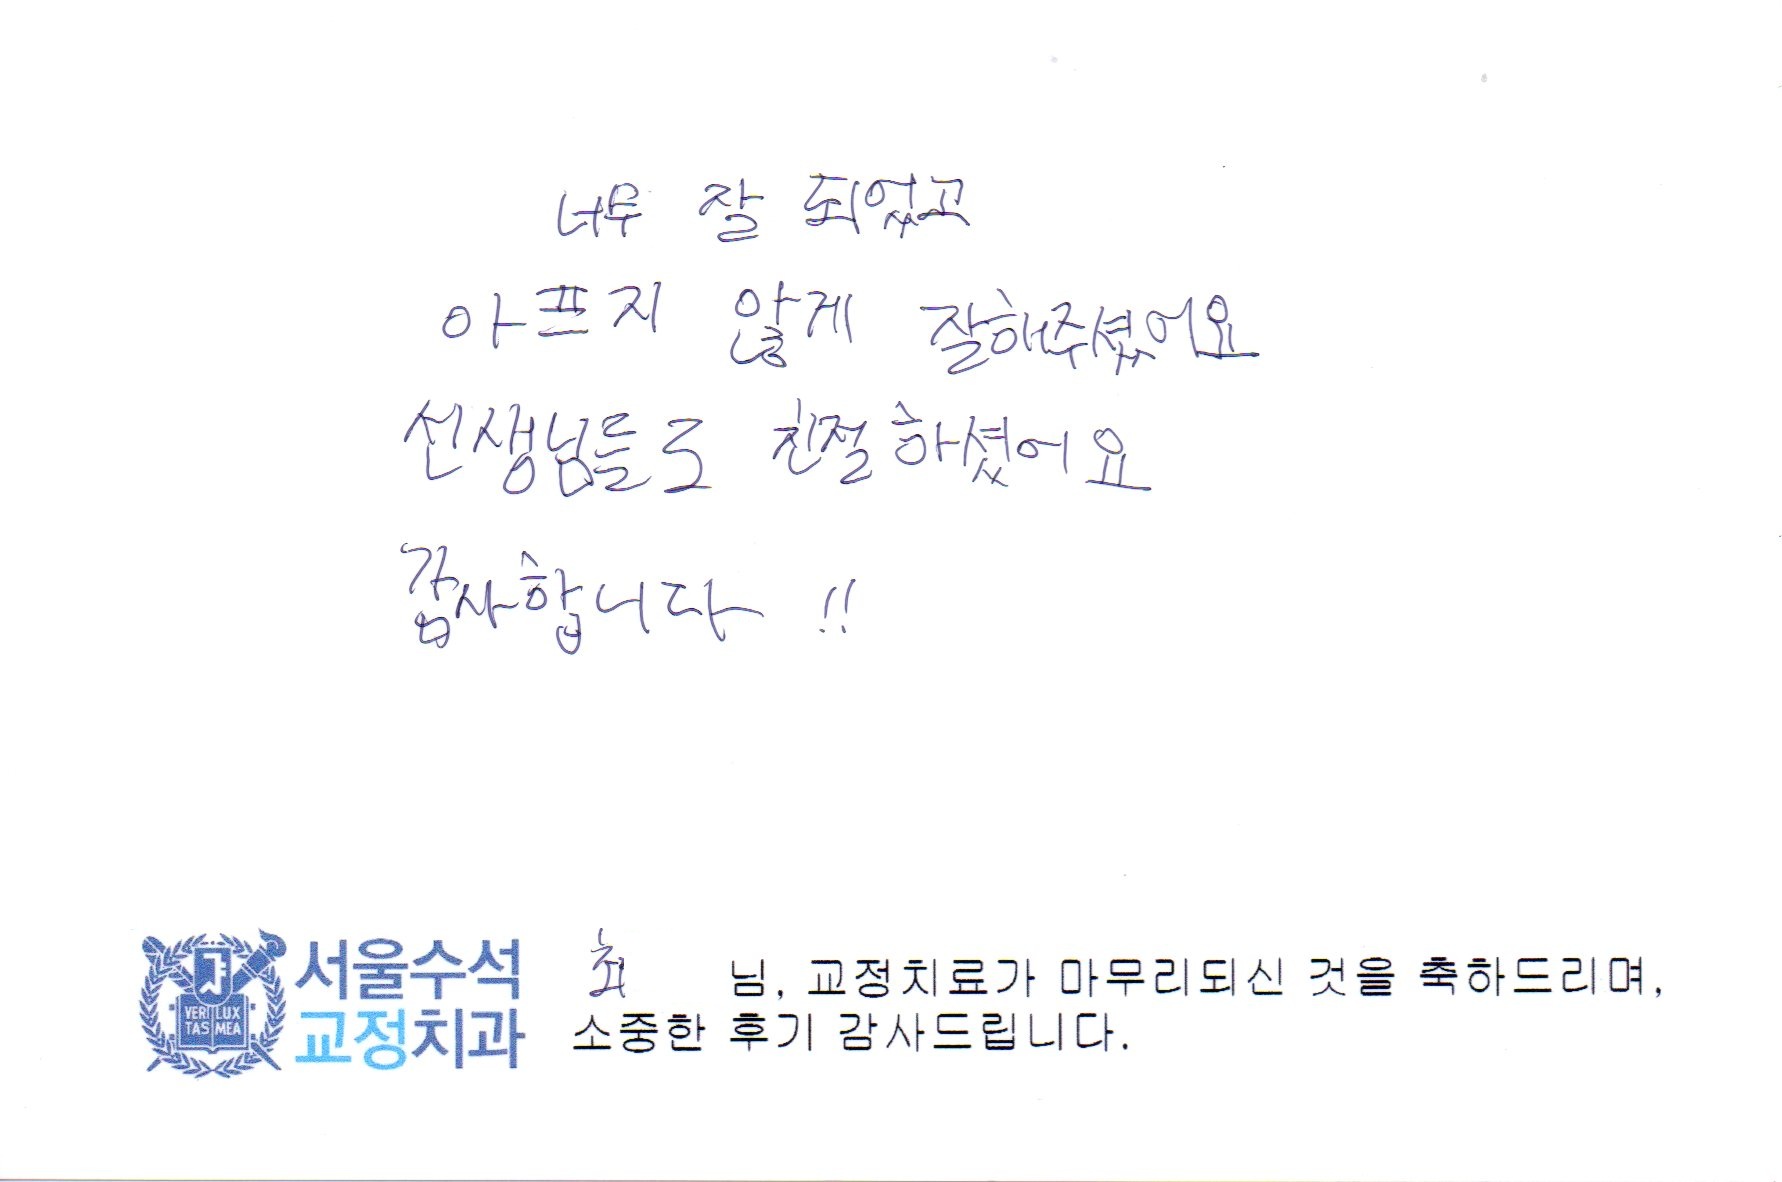 너무 잘 되었고
아프지 않게 잘해주셨어요
선생님들도 친절하셨어요
감사합니다 !!
VERI LUX
TAS MEA
서울수석
교정치과
최 님, 교정치료가 마무리되신 것을 축하드리며,
소중한 후기 감사드립니다.